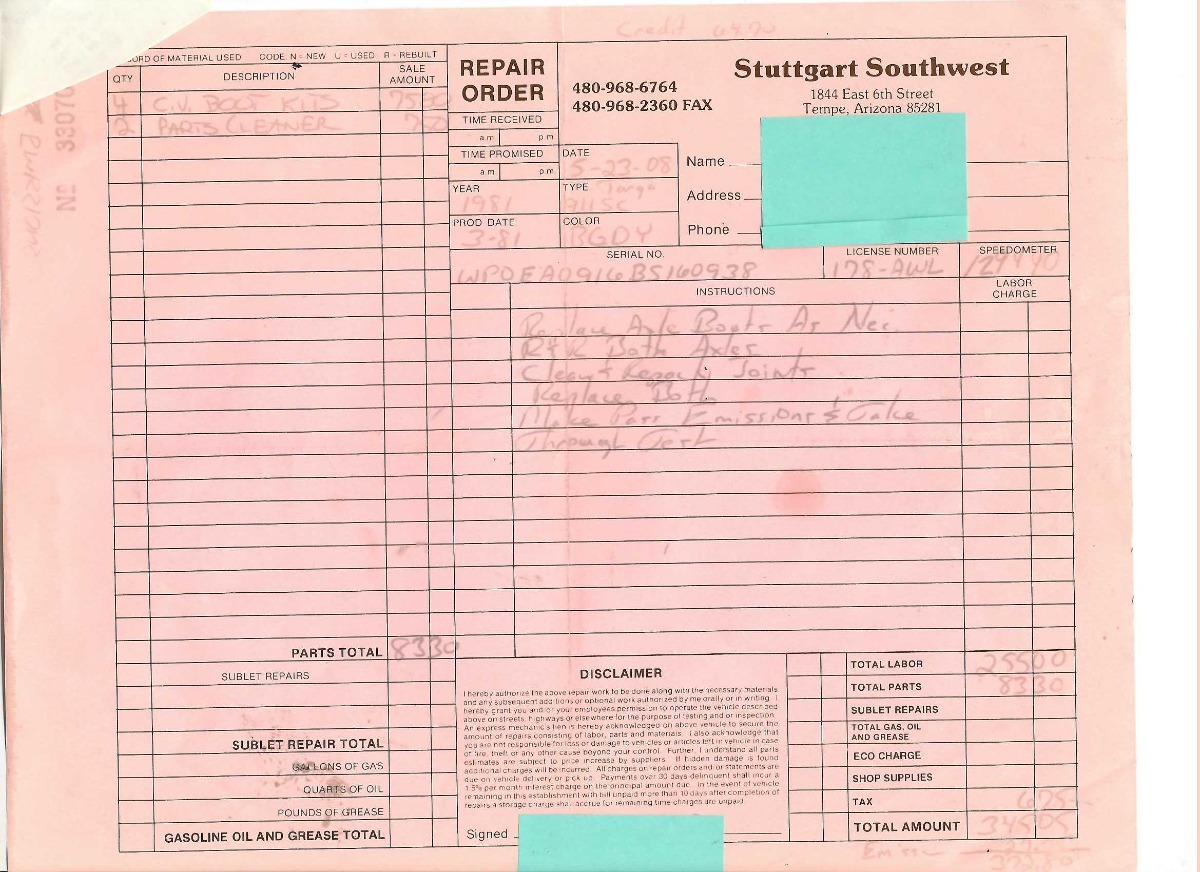 Credit 64.70
ORD OF MATERIAL USED CODE N = NEW U = USED R = REBUILT
QTY DESCRIPTION SALE AMOUNT
4 C.V. BOOT KITS 75
2 PARTS CLEANER 7
Nº 33070
REPAIR ORDER
480-968-6764
480-968-2360 FAX
Stuttgart Southwest
1844 East 6th Street
Tempe, Arizona 85281
TIME RECEIVED
a.m. p.m.
TIME PROMISED
a.m. p.m.
DATE
5-23-08
Name
Address
Phone
YEAR
1981
TYPE
Targa
911SC
PROD DATE
3-81
COLOR
BGDY
SERIAL NO.
WPOEA0916BS160938
LICENSE NUMBER
178-AWL
SPEEDOMETER
INSTRUCTIONS
LABOR CHARGE
Replace Axle Boots As Nec.
R & R Both Axles
Clean & Repack Joints
Replace Both
Make Pass Emissions & Take
Through Test
PARTS TOTAL 8330
SUBLET REPAIRS
SUBLET REPAIR TOTAL
GALLONS OF GAS
QUARTS OF OIL
POUNDS OF GREASE
GASOLINE OIL AND GREASE TOTAL
DISCLAIMER
I hereby authorize the above repair work to be done along with the necessary materials
and any subsequent additions or optional work authorized by me orally or in writing. I
hereby grant you and/or your employees permission to operate the vehicle described
above on streets, highways or elsewhere for the purpose of testing and/or inspection.
An express mechanic's lien is hereby acknowledged on above vehicle to secure the
amount of repairs consisting of labor, parts and materials. I also acknowledge that
you are not responsible for loss or damage to vehicles or articles left in vehicle in case
of fire, theft or any other cause beyond your control. Further, I understand all parts
estimates are subject to price increase by suppliers. If hidden damage is found
additional charges will be incurred. All charges on repair orders and/or statements are
due on vehicle delivery or pick up. Payments over 30 days delinquent shall incur a
1.5% per month interest charge on the principal amount due. In the event of vehicle
remaining in this establishment with bill unpaid more than 10 days after completion of
repairs a storage charge shall accrue for remaining time charges are unpaid.
Signed
TOTAL LABOR 25500
TOTAL PARTS 8330
SUBLET REPAIRS
TOTAL GAS, OIL AND GREASE
ECO CHARGE
SHOP SUPPLIES
TAX 675
TOTAL AMOUNT 34505
372.80